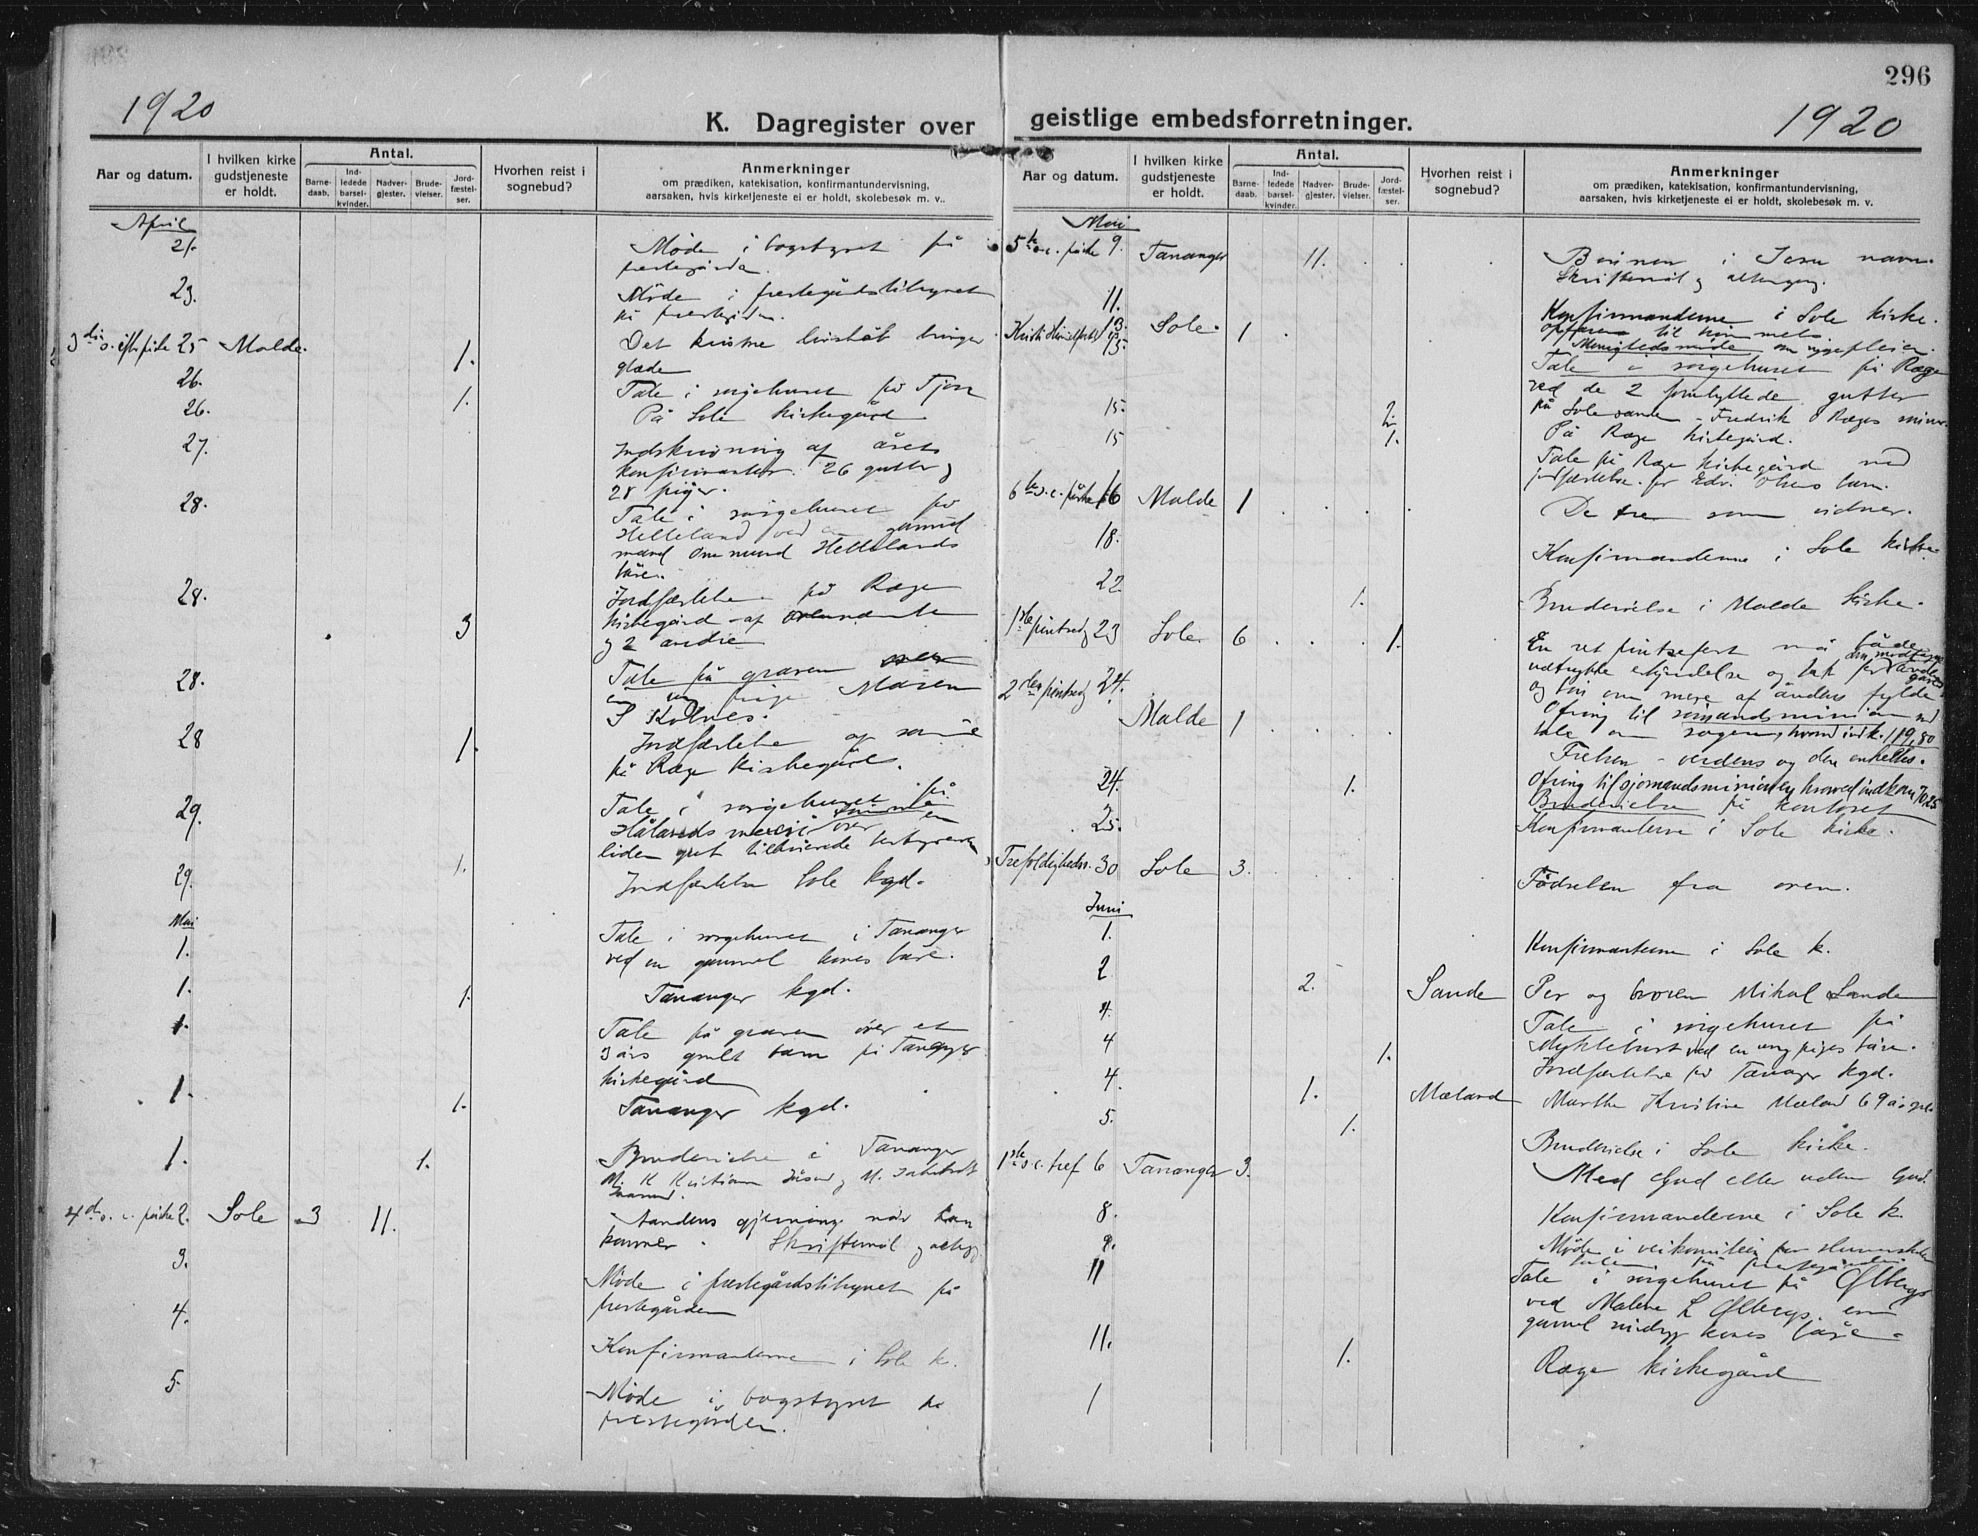 296
1920
K. Dagregister over
Aar og datum.
I hvilken kirke gudstjeneste er holdt.
Antal.
Barne-daab.
Ind-ledede barsel-kvinder.
Nadver-gjester.
Brude-vielser.
Jord-fæstel-ser.
Hvorhen reist i sognebud?
Anmerkninger
om prædiken, katekisation, konfirmantundervisning,
aarsaken, hvis kirketjeneste ei er holdt, skolebesøk m. v..
April
21. Møde i bogstyret på
prestegården.
23. Møde i prestegårdstilsynet
på
25 Malde. 1. Det kristne livshåb bringer
glæde
26. Tale i sørgehuset på Tjora
26. 1. På Sole kirkegård
27. Indskrivning af årets
konfirmanter. 26 gutter og
28 piger.
28. Tale i sørgehuset på
Helleland ved en gammel
mand Hellelands
båre.
28. 3 Jordfæstelse på Ræge
kirkegård af ovennævnte
og 2 andre
28. Tale på graven over
en ung pige Maren
S Kolnes.
28 1. Jordfæstelse af samme
på Ræge kirkegård.
29. Tale i sørgehuset på
Hålands
liden gut
29. 1. Jordfæstelse Sole kgd.
Mai
1. Tale i sørgehuset i Tananger
ved en gammel kones båre.
1. 1. Tananger kgd.
1. Tale på graven over et
3 års gmlt barn på Tananger
kirkegård
1. 1. Tananger kgd.
1. 1. Brudevielse i Tananger
K Kristian
4de s. e. påske 2. Sole 3 11. Aandens gjerning når han
kommer. Skriftemål og
3. Møde i prestegårdstilsynet på
prestegården
4. Konfirmanterne i Sole k.
5. Møde i bogstyret på
prestegården.
1920
geistlige embedsforretninger.
Aar og datum.
I hvilken kirke gudstjeneste er holdt.
Antal.
Barne-daab.
Ind-ledede barsel-kvinder.
Nadver-gjester.
Brude-vielser.
Jord-fæstel-ser.
Hvorhen reist i sognebud?
Anmerkninger
om prædiken, katekisation, konfirmantundervisning,
aarsaken, hvis kirketjeneste ei er holdt, skolebesøk m. v.
Mai
5te s. e. påske 9. Tananger 11. Bønnen i Jesu navn.
Skriftemål og altergang.
11. Konfirmanderne i Sole kirke.
Kristi Himmelfartsd 13. Sole. 1 til himmels
15. Menighedsmøde om sygepleien.
Tale i sørgehuset på Ræge
ved de 2 gutter
15. 2. på Sole Fredrik Ræges
15 1. På Ræge kirkegård.
Tale på Ræge kirkegård med
jordfæstelse for Edv. Olsens barn.
6te s. e. påske 16 Malde 1 De tre som vidner.
18. Konfirmanderne i Sole kirke
22. 1. Brudevielse i Malde kirke.
1ste pintsedg 23 Sole 6 1. En ret pintsefest må både
udtrykke og tak for
og bøn om mere af åndens fylde
Ofring til sømandsmissionen ved
tale om sagen, hvorved indk. 119,80
2den pintsedg 24. Malde 1 Frelsen - verdens og den enkeltes.
Ofring til sjømandsmissionen hvorved indkom 70,25
24. 1. Brudevielse på kontoret
25. Konfirmanterne i Sole kirke.
Trefoldighedss. 30 Sole 3. Fødselen fra oven.
Juni
1. Konfirmanterne i Sole k.
2 2. Sande Per og broren Mikal Sande
4. Tale i sørgehuset på
Myklebust ved en ung piges båre.
4 1. Jordfæstelse på Tananger kgd.
4. 1. Mæland Marthe Kristine Mæland 69 år
5. 1. Brudevielse i Sole kirke.
1ste s. e. tref 6 Tananger 3. Med Gud eller uden Gud.
8. Konfirmanderne i Sole k.
9. Møde i
på prestegården
11 Tale i sørgehuset på Ølberg
ved Malene L Ølbergs, en
gammel kones båre.
11. 1. Ræge kirkegård
1